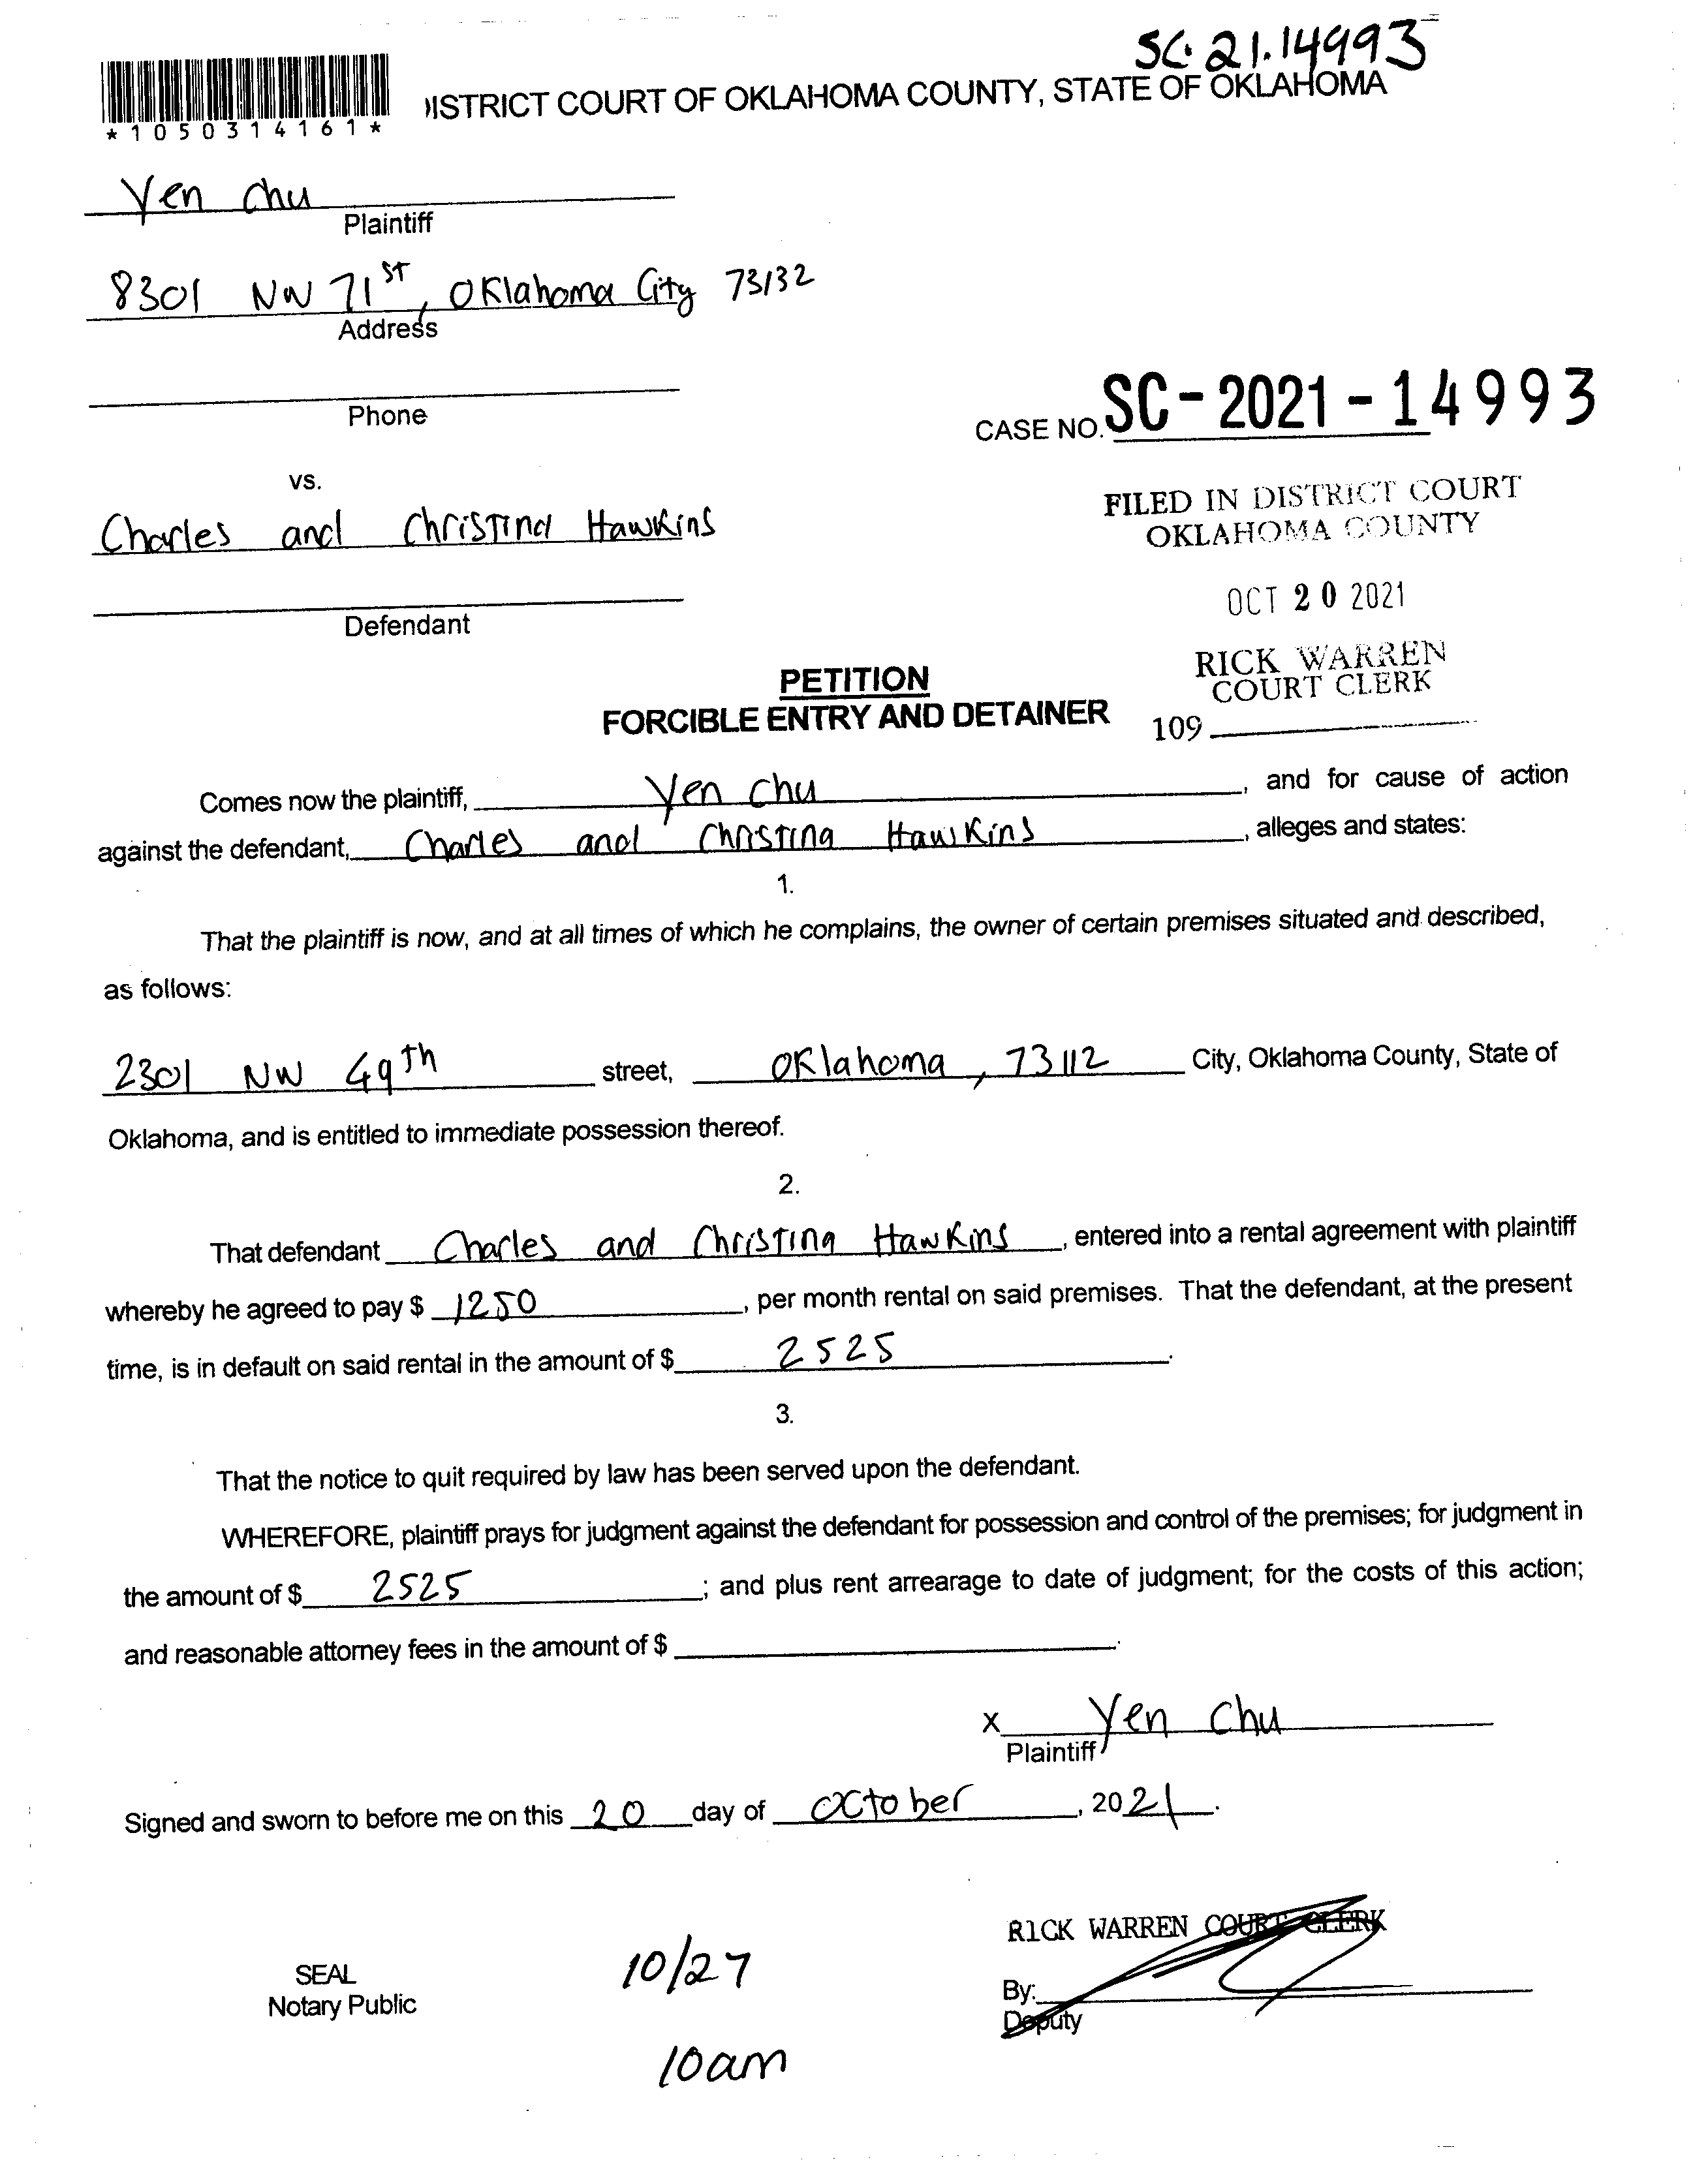 SC. 21.14993
*1050314161*
ISTRICT COURT OF OKLAHOMA COUNTY, STATE OF OKLAHOMA
Yen Chu
Plaintiff
8301 NW 71ST, Oklahoma City 73132
Address
Phone
CASE NO. SC-2021-14993
vs.
Charles and Christina Hawkins
FILED IN DISTRICT COURT
OKLAHOMA COUNTY
OCT 20 2021
Defendant
RICK WARREN
COURT CLERK
109
PETITION
FORCIBLE ENTRY AND DETAINER
Comes now the plaintiff, Yen Chu, and for cause of action
against the defendant, Charles and Christina Hawkins, alleges and states:
1.
That the plaintiff is now, and at all times of which he complains, the owner of certain premises situated and described,
as follows:
2301 NW 49th street, Oklahoma, 73112 City, Oklahoma County, State of
Oklahoma, and is entitled to immediate possession thereof.
2.
That defendant Charles and Christina Hawkins, entered into a rental agreement with plaintiff
whereby he agreed to pay $ 1250, per month rental on said premises. That the defendant, at the present
time, is in default on said rental in the amount of $ 2525.
3.
That the notice to quit required by law has been served upon the defendant.
WHEREFORE, plaintiff prays for judgment against the defendant for possession and control of the premises; for judgment in
the amount of $ 2525; and plus rent arrearage to date of judgment; for the costs of this action;
and reasonable attorney fees in the amount of $ .
X Yen Chu
Plaintiff
Signed and sworn to before me on this 20 day of October, 2021.
RICK WARREN COURT CLERK
SEAL
Notary Public
10/27
By:
Deputy
10am